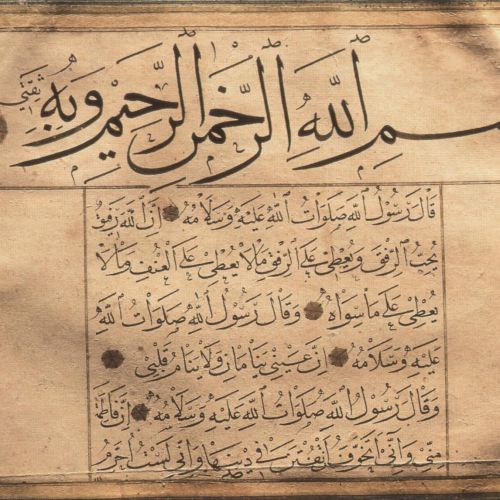 بسم الله الرحمن الرحيم وبه ثقتي
قال رسول الله صلوات الله عليه وسلامه إن الله رفيق
يحب الرفق ويعطي على الرفق ما لا يعطي على العنف وما لا
يعطي على ما سواه وقال رسول الله صلوات الله
عليه وسلامه إن عيني تنامان ولا ينام قلبي
وقال رسول الله صلوات الله عليه وسلامه إن فاطمة
مني وإني أتخوف أن تفتن في دينها وإني لست أحرم